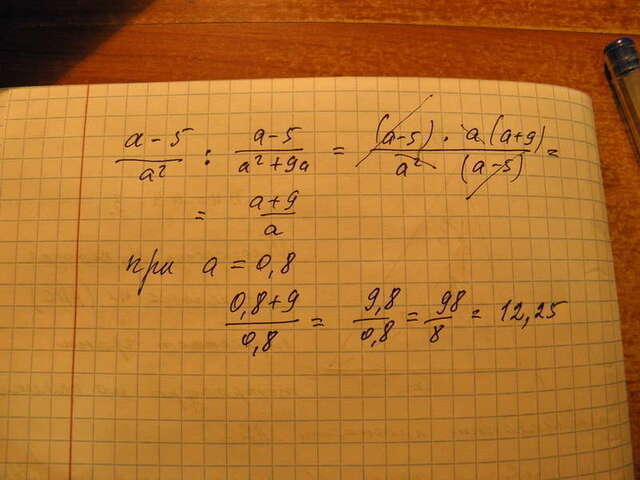 (a-5)/a² : (a-5)/(a²+9a) = ((a-5) · a(a+9))/(a² (a-5)) =
= (a+9)/a
при a = 0,8
(0,8+9)/0,8 = 9,8/0,8 = 98/8 = 12,25